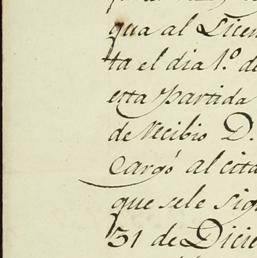 gua al Licen
ta el dia 1.º de
esta partida
de recibio D.
Cargó al cita
que se le sig
31 de Dicie